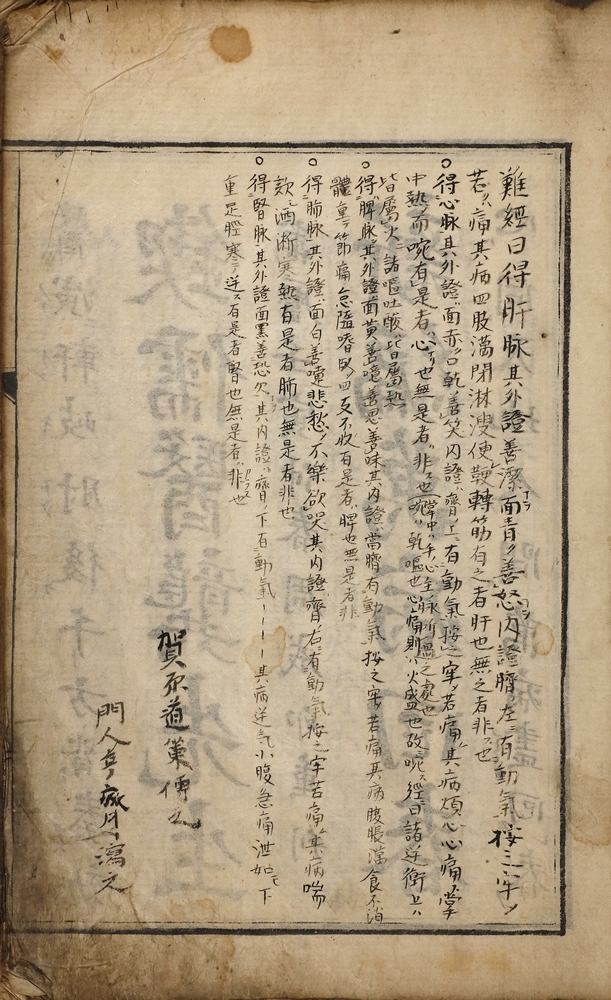 難經曰得肝脉其外證善潔面青善怒内證臍左有動氣按之牢
若痛其病四肢滿閉淋溲便鞕轉筋有之者肝也無之者非也
○得心脉其外證面赤口乾善笑内證臍上有動氣按之牢若痛其病煩心心痛掌
中熱而啘有是者心也無是者非也掌中手心主脉所過之處也
啘乾嘔也心痛則火盛也故啘經曰諸逆衝上
皆屬火諸嘔吐酸皆屬熱
○得脾脉其外證面黄善噫善思善味其内證當臍有動氣按之牢若痛其病腹脹滿食不消
體重節痛怠墮嗜卧四支不收有是者脾也無是者非
○得肺脉其外證面白善嚏悲愁不樂欲哭其内證臍右有動氣按之牢若痛其病喘
欬洒淅寒熱有是者肺也無是者非也
○得腎脉其外證面黑善恐欠其内證臍下有動氣一一一其病逆氣小腹急痛泄如下
重足脛寒逆有是者腎也無是者非也
賀原道策傳之
門人 寫之